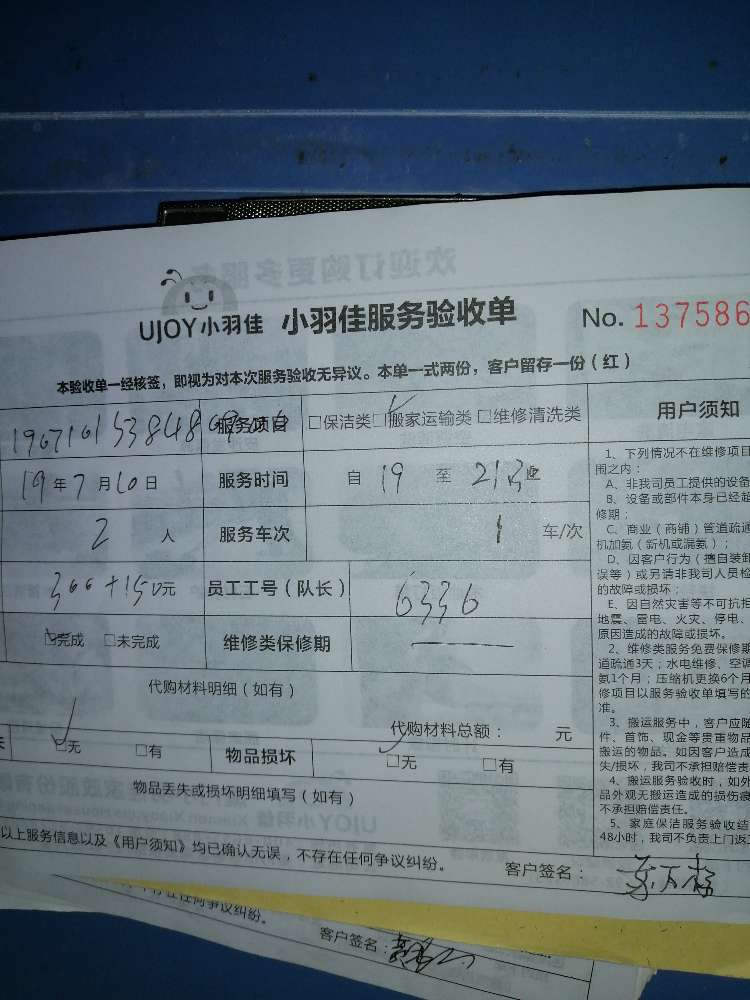 UJOY小羽佳 小羽佳服务验收单 No. 137586
本验收单一经核签，即视为对本次服务验收无异议。本单一式两份，客户留存一份（红）
服务项目 □保洁类 □搬家运输类 □维修清洗类 用户须知
19年7月10日 服务时间 自 19 至 21
2 人 服务车次 1 车/次
300+150元 员工工号（队长） 6336
□完成 □未完成 维修类保修期 —
代购材料明细（如有）
代购材料总额： 元
□无 □有 物品损坏 □无 □有
物品丢失或损坏明细填写（如有）
以上服务信息以及《用户须知》均已确认无误，不存在任何争议纠纷。
客户签名：
1、下列情况不在维修项目
围之内：
A、非我司员工提供的设备
B、设备或部件本身已经超
修期；
C、商业（商铺）管道疏通
机加氨（新机或漏氨）；
D、因客户行为（擅自装卸
误等）或另请非我司人员检
的故障或损坏；
E、因自然灾害等不可抗拒
地震、雷电、火灾、停电、
原因造成的故障或损坏。
2、维修类服务免费保修期
道疏通3天；水电维修、空调
氨1个月；压缩机更换6个月
修项目以服务验收单填写的
准。
3、搬运服务中，客户应随
件、首饰、现金等贵重物品
搬运的物品。如因客户造成
失/损坏，我司不承担赔偿责
4、搬运服务验收时，如外
品外观无搬运造成的损伤痕
不承担赔偿责任。
5、家庭保洁服务验收结
48小时，我司不负责上门返工
争议纠纷。
客户签名：